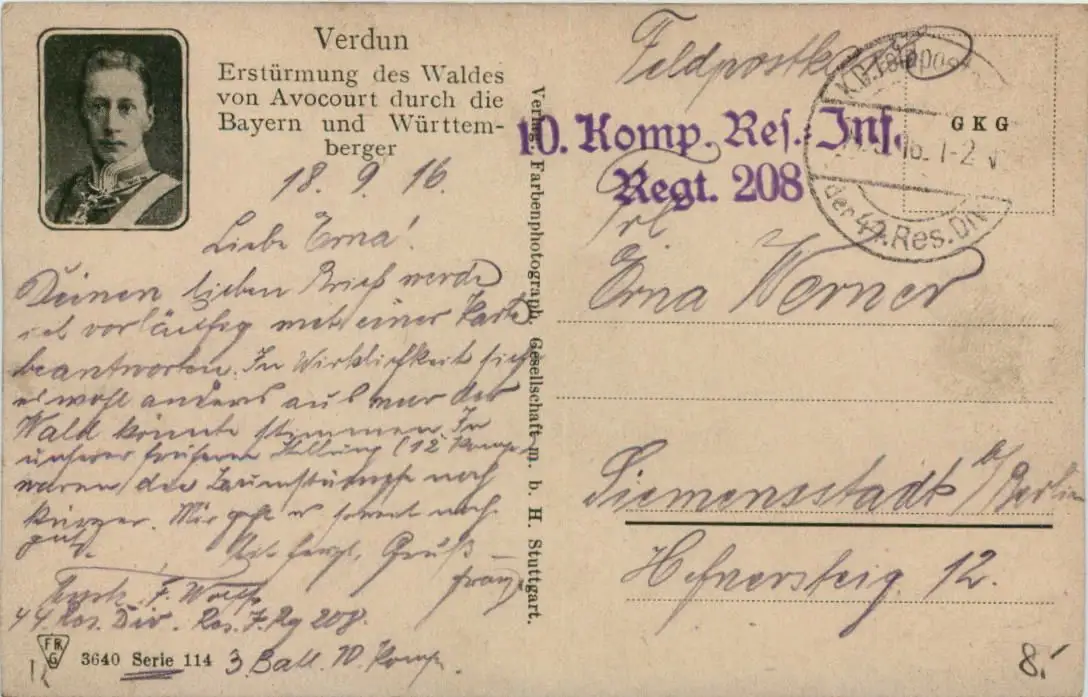 Verdun
Erstürmung des Waldes
von Avocourt durch die
Bayern und Württem-
berger
18. 9. 16.
Liebe Erna!
Deinen lieben Brief werde
ich vorläufig mit einer Karte
beantworten. In Wirklichkeit sieht
es wohl anders aus nur der
Wald könnte stimmen. In
unserer früheren Stellung (12. Komp.)
waren die Baumstümpfe noch
kürzer. Mir geht es soweit noch
gut.
Mit herzl. Gruß –
Franz
F. Wolff
44. Res. Div. Res. I. Rg 208.
3. Batl. 10. Komp.
FR
G
3640 Serie 114
Verlag: Farbenphotograph. Gesellschaft m. b. H. Stuttgart.
Feldpostk
10. Komp. Res.-Inf.
Regt. 208
K.D. Feldpos
16. 1-2 N
der 44. Res. Div
GKG
Frl
Erna Werner
Siemensstadt b/Berlin
Hefnersteig 12.
8.